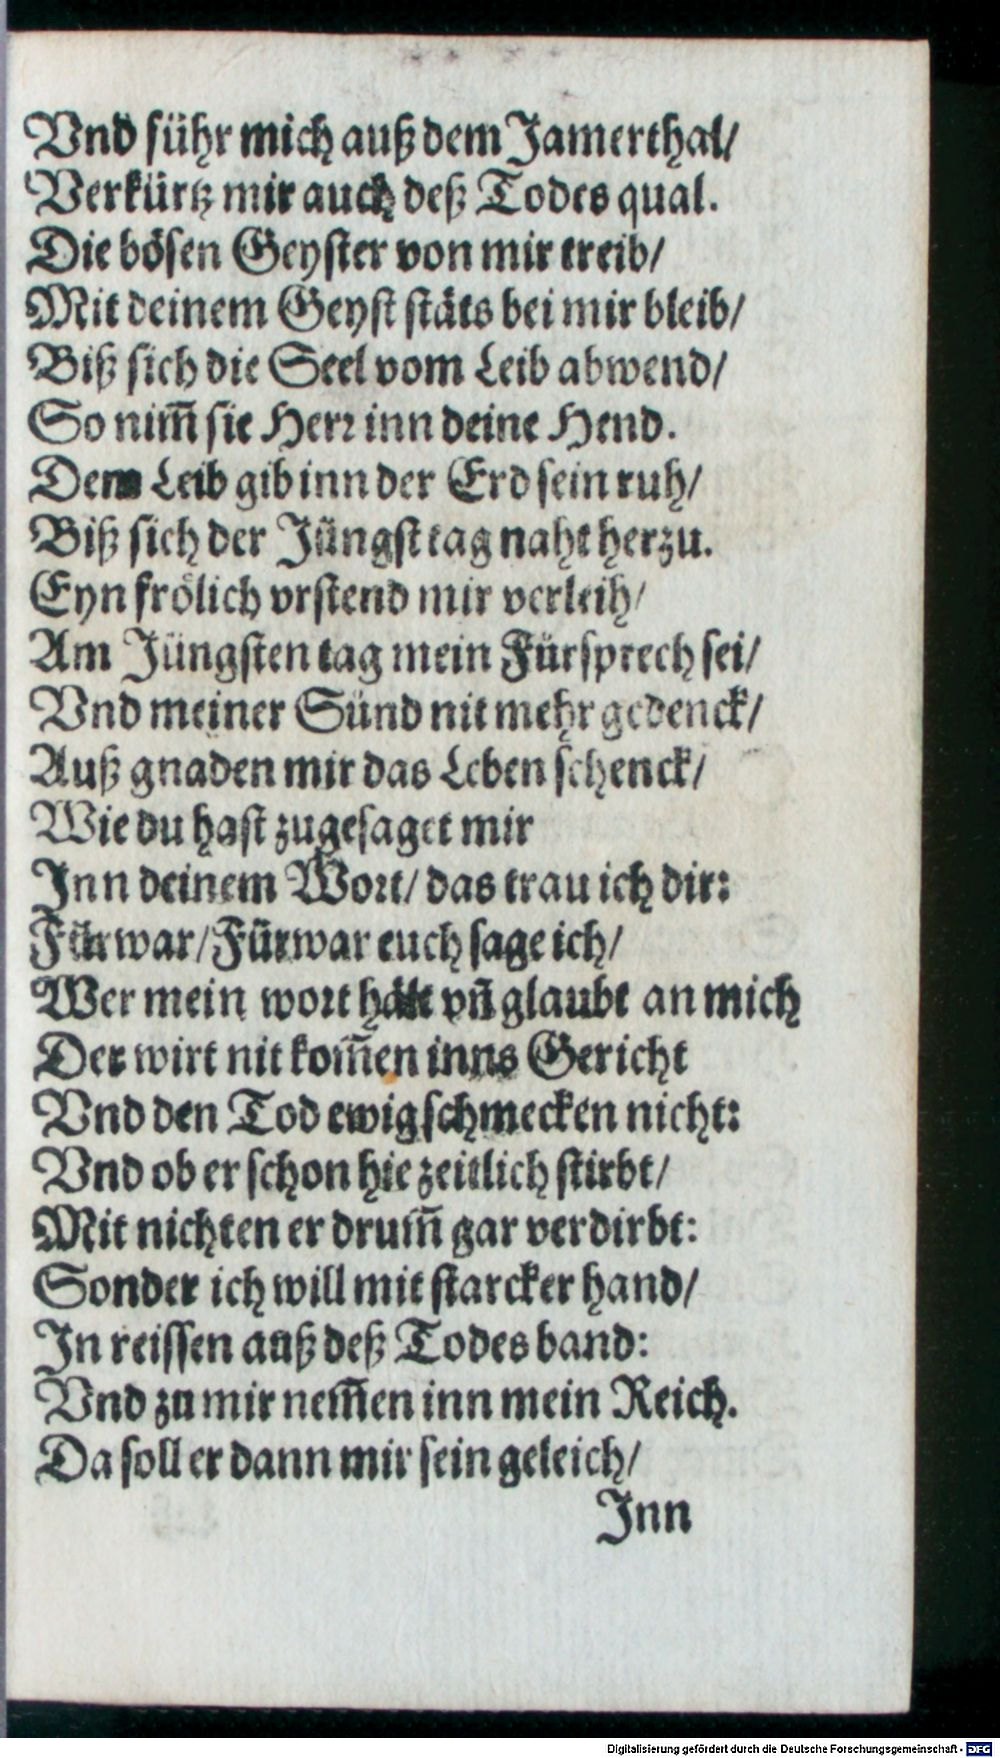 Vnd führ mich auß dem Jamerthal/
Verkürtz mir auch deß Todes qual.
Die bösen Geyster von mir treib/
Mit deinem Geyst stäts bei mir bleib/
Biß sich die Seel vom Leib abwend/
So nim̃ sie Herr inn deine Hend.
Dem Leib gib inn der Erd sein ruh/
Biß sich der Jüngst tag naht herzu.
Eyn frölich vrstend mir verleih/
Am Jüngsten tag mein Fürsprech sei/
Vnd meiner Sünd nit mehr gedenck/
Auß gnaden mir das Leben schenck/
Wie du hast zugesaget mir
Inn deinem Wort/ das trau ich dir:
Fürwar/ Fürwar euch sage ich/
Wer mein wort hält vñ glaubt an mich
Der wirt nit kom̃en inns Gericht
Vnd den Tod ewig schmecken nicht:
Vnd ob er schon hie zeitlich stirbt/
Mit nichten er drum̃ gar verdirbt:
Sonder ich will mit starcker hand/
In reissen auß deß Todes band:
Vnd zu mir nem̃en inn mein Reich.
Da soll er dann mir sein geleich/
Inn
Digitalisierung gefördert durch die Deutsche Forschungsgemeinschaft - DFG